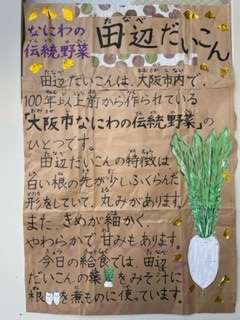 なにわの
伝統野菜
田辺だいこん
田辺だいこんは、大阪市内で、
100年以上前から作られている
「大阪市なにわの伝統野菜」の
ひとつです。
田辺だいこんの特徴は
白い根の先が少しふくらんだ
形をしていて、丸みがあります。
また、きめが細かく、
やわらかで甘みもあります。
今日の給食では、田辺
だいこんの葉をみそ汁に
根を煮ものに使っています。